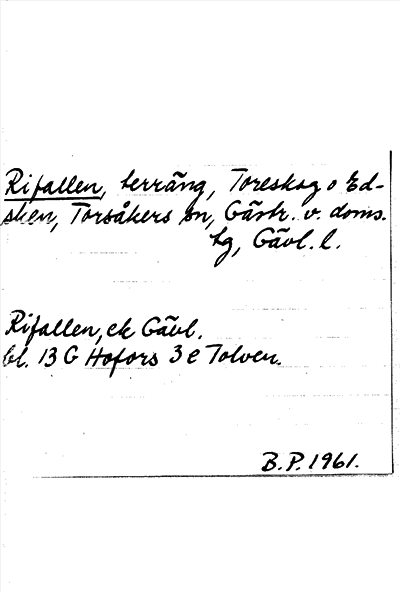 Rifallen, terräng, Toreskog o Ed-
sken, Torsåkers sn, Gästr. v. doms.
tg, Gävl. l.
Rifallen, ek Gävl.
bl. 13 G Hofors 3 e Tolven.
B.P. 1961.